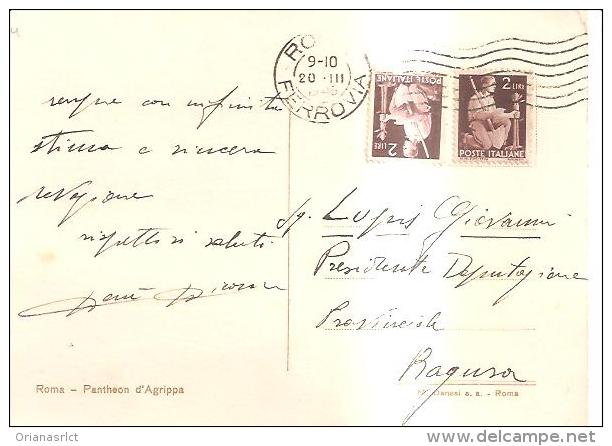 sempre con infinita
stima e sincera
devozione
rispettosi saluti
ROMA
9-10
20 III
FERROVIA
POSTE ITALIANE
2 LIRE
2 LIRE
POSTE ITALIANE
Sg. Lupis Giovanni
Presidente Deputazione
Provinciale
Ragusa
Roma - Pantheon d'Agrippa
Danesi s. a. - Roma
Orianasrlct
www.delcampe.net